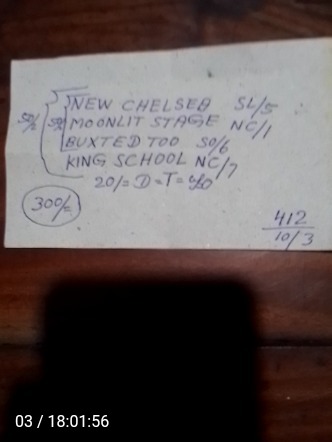 NEW CHELSEA SL/5
50/= 50/= MOONLIT STAGE NC/1
BUXTED TOO SO/6
KING SCHOOL NC/7
20/= D=T=
300/=
412
10/3
03 / 18:01:56